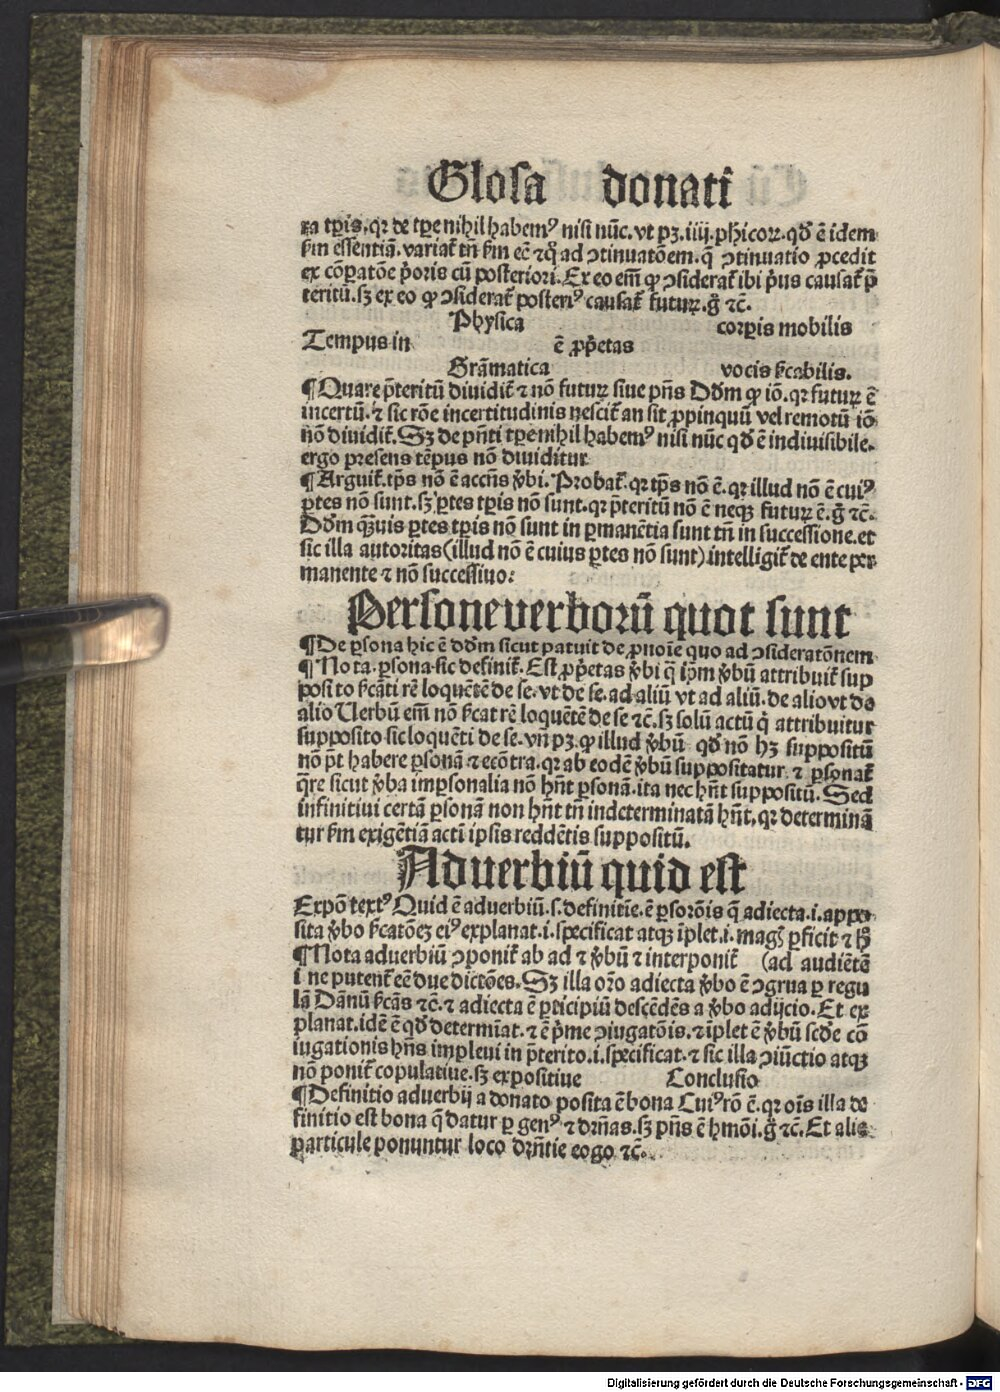 Glosa donati
ra tp̄is. qꝛ de tp̄e nihil habemꝰ nisi nūc. vt pꝫ. iiij. phicoꝝ. qd̄ ē idem
ẜm essentiā. variat᷑ tn̄ ẜm eē ⁊ꝙ ad ↄtinuatōem. q̄ ↄtinuatio ꝓcedit
ex cōꝑatōe p̄oris cū posteriori. Ex eo em̄ ꝙ ↄsiderat᷑ ibi p̄us causat᷑ p̄
teritū. sꝫ ex eo ꝙ ↄsiderat᷑ posteriꝰ causat᷑ futuꝝ. g̊ ⁊c̄.
Physica corꝑis mobilis
Tempus in ē ꝓp̄etas
Grāmatica vocis ẜcabilis.
¶Quare p̄teritū diuidit᷑ ⁊ nō futuꝝ siue pn̄s Dd̄m ꝙ iō. qꝛ futuꝝ ē
incertū. ⁊ sic rōe incertitudinis nescit᷑ an sit ꝓpinquū vel remotū iō
nō diuidit᷑. Sꝫ de pn̄ti tp̄e nihil habemꝰ nisi nūc qd̄ ē indiuisibile.
ergo presens tēpus nō diuiditur
¶Arguit᷑. tp̄s nō ē accn̄s v̄bi. Probat᷑. qꝛ tp̄s nō ē. qꝛ illud nō ē cuiꝰ
ꝑtes nō sunt. sꝫ ꝑtes tp̄is nō sunt. qꝛ p̄teritū nō ē neqꝫ futuꝝ ē. g̊ ⁊c̄.
Dd̄m qꝫuis ꝑtes tp̄is nō sunt in ꝑmanētia sunt tn̄ in successione. et
sic illa autoritas (illud nō ē cuius ꝑtes nō sunt) intelligit᷑ de ente per
manente ⁊ nō successiuo:
Persone verborū quot sunt
¶De ꝑsona hic ē dd̄m sicut patuit de ꝓnoīe quo ad ↄsideratōnem
¶Nota. ꝑsona sic definit᷑. Est ꝓp̄etas v̄bi q̄ ip̄m v̄bū attribuit᷑ sup
posito ẜcāti rē loquētē de se. vt de se. ad aliū vt ad aliū. de alio vt de
alio Uerbū em̄ nō ẜcat rē loquētē de se ⁊c̄. sꝫ solū actū q̇ attribuitur
supposito sic loquēti de se. vn̄ pꝫ. ꝙ illud v̄bū qd̄ nō hꝫ suppositū
nō p̄t habere ꝑsonā ⁊ ecōtra. qꝛ ab eodē v̄bū suppositatur ⁊ ꝑsonat᷑
q̄re sicut v̄ba imꝑsonalia nō hn̄t ꝑsonā. ita nec hn̄t suppositū. Sed
infinitiui certā ꝑsonā non hn̄t tn̄ indeterminatā hn̄t. qꝛ determinā
tur ẜm exigētiā acti ipsis reddētis suppositū.
Aduerbiū quid est
Expō textꝰ Quid ē aduerbiū. s. definitiue. ē ꝑsorōis q̄ adiecta. i. appo
sita v̄bo ẜcatōeꝫ eiꝰ explanat. i. specificat atqꝫ īplet. i. magꝭ ꝑficit ⁊ hꝫ
¶Nota aduerbiū ↄponit᷑ ab ad ⁊ v̄bū ⁊ interponit᷑ (ad audiētē
i ne putent᷑ eē due dictōes. Sꝫ illa or̄o adiecta v̄bo ē ↄgrua ꝑ regu
lā Dānū ẜcās ⁊c̄. ⁊ adiecta ē ꝑticipiū descēdēs a v̄bo adijcio. Et ex
planat. idē ē qd̄ determīat. ⁊ ē p̄me ↄiugatōis. ⁊ īplet ē v̄bū scd̄e cō
iugationis hn̄s impleui in p̄terito. i. specificat. ⁊ sic illa ↄiūctio atqꝫ
nō ponit᷑ copulatiue. sꝫ expositiue Conclusio
¶Definitio aduerbij a donato posita ē bona Cuiꝰ rō ē. qꝛ oīs illa de
finitio est bona q̄ datur ꝑ genꝰ ⁊ dr̄nas. sꝫ pn̄s ē hmōi. g̊ ⁊c̄. Et alie
ꝑarticule ponuntur loco dr̄n̄tie eogo ⁊c̄.
Digitalisierung gefördert durch die Deutsche Forschungsgemeinschaft - DFG